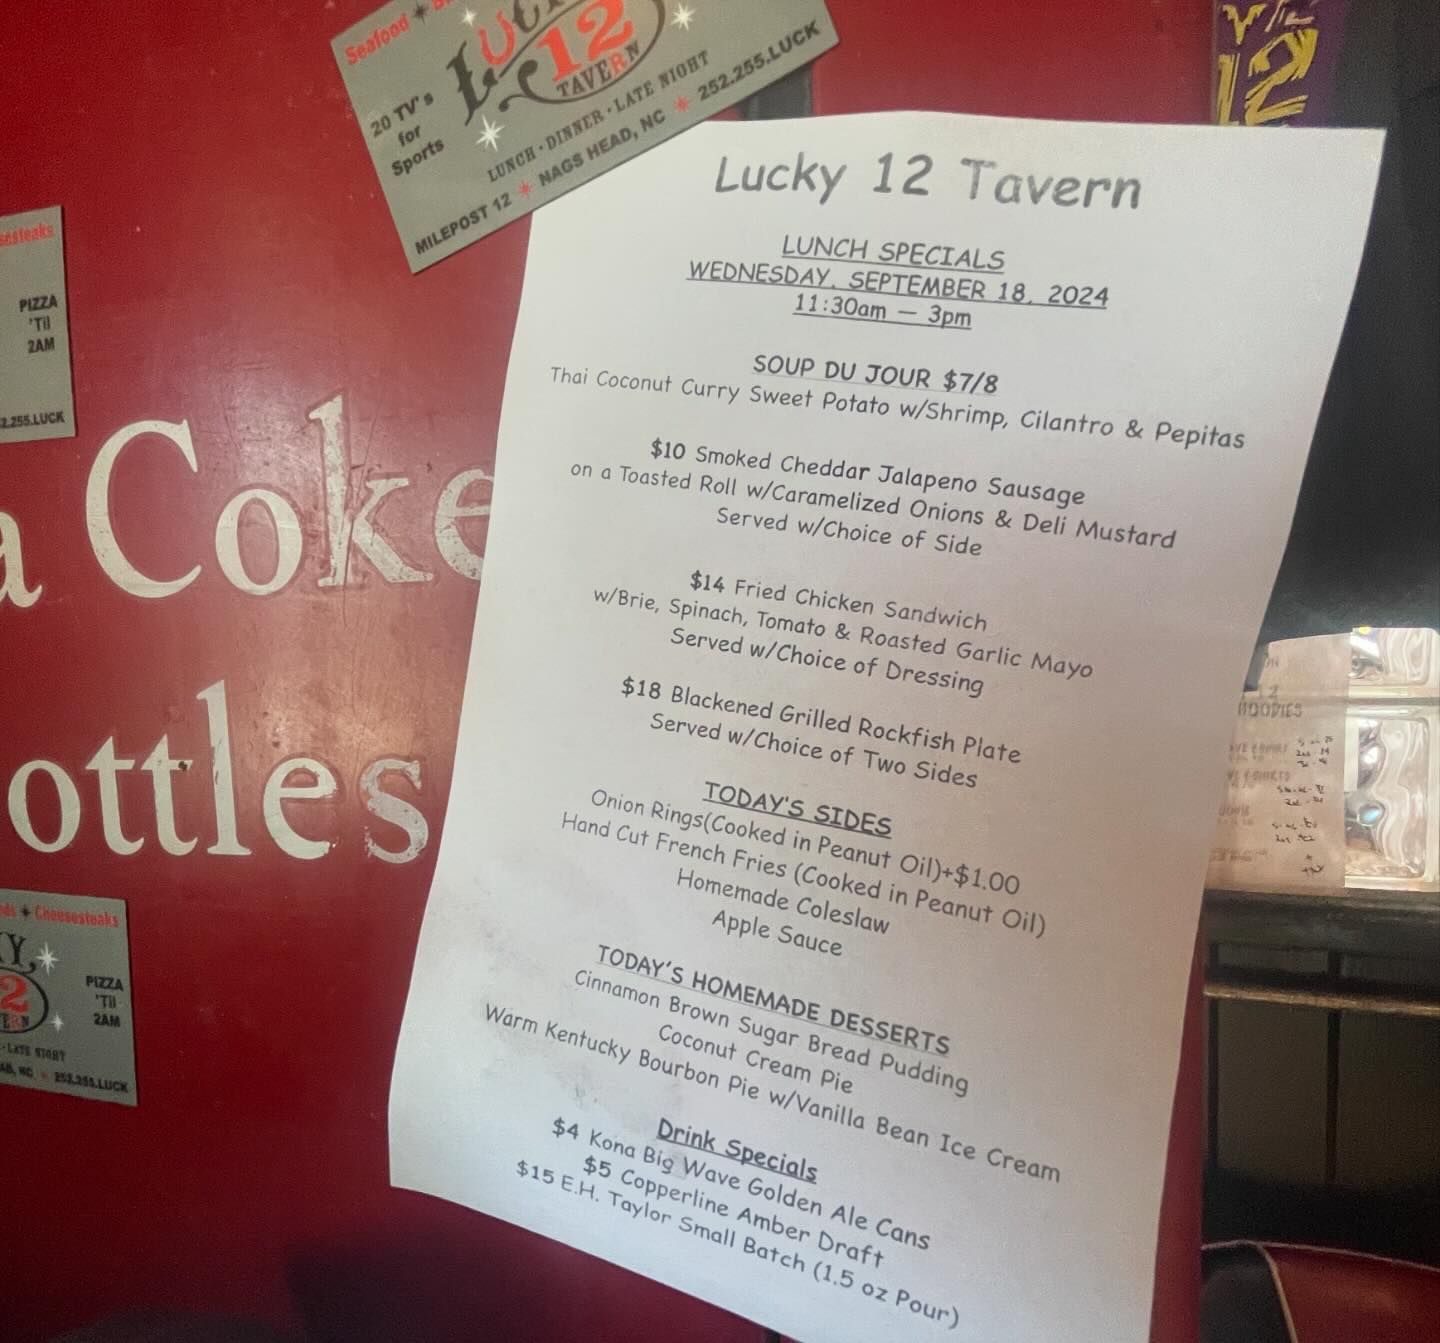 Seafood
LUCKY
12
TAVERN
20 TV's
for
Sports
LUNCH · DINNER · LATE NIGHT
MILEPOST 12 * NAGS HEAD, NC * 252.255.LUCK
12
Lucky 12 Tavern
LUNCH SPECIALS
WEDNESDAY, SEPTEMBER 18, 2024
11:30am — 3pm
SOUP DU JOUR $7/8
Thai Coconut Curry Sweet Potato w/Shrimp, Cilantro & Pepitas
$10 Smoked Cheddar Jalapeno Sausage
on a Toasted Roll w/Caramelized Onions & Deli Mustard
Served w/Choice of Side
$14 Fried Chicken Sandwich
w/Brie, Spinach, Tomato & Roasted Garlic Mayo
Served w/Choice of Dressing
$18 Blackened Grilled Rockfish Plate
Served w/Choice of Two Sides
TODAY'S SIDES
Onion Rings(Cooked in Peanut Oil)+$1.00
Hand Cut French Fries (Cooked in Peanut Oil)
Homemade Coleslaw
Apple Sauce
TODAY'S HOMEMADE DESSERTS
Cinnamon Brown Sugar Bread Pudding
Coconut Cream Pie
Warm Kentucky Bourbon Pie w/Vanilla Bean Ice Cream
Drink Specials
$4 Kona Big Wave Golden Ale Cans
$5 Copperline Amber Draft
$15 E.H. Taylor Small Batch (1.5 oz Pour)
esesteaks
PIZZA
'Til
2AM
2.255.LUCK
a Coke
ottles
ds * Cheesesteaks
KY
12
ERN
PIZZA
'Til
2AM
· LATE NIGHT
AD, NC * 252.255.LUCK
HOODIES